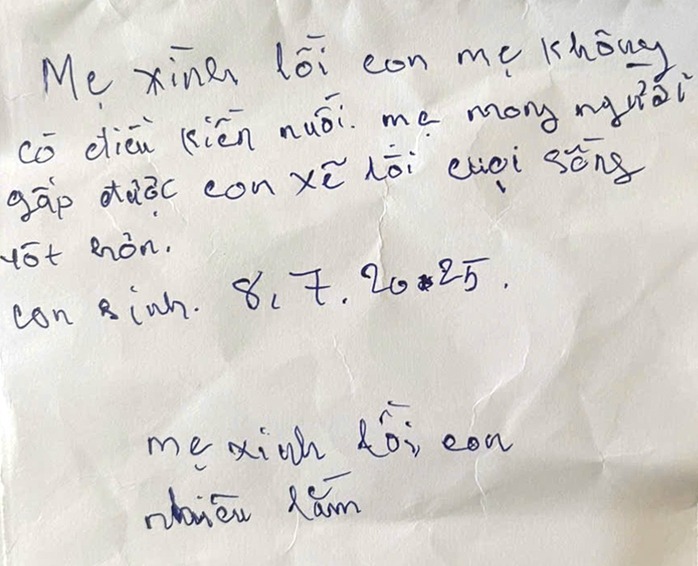 Mẹ xình lỗi con mẹ không
có điều kiến nuôi. mẹ mong người
gấp được con xẽ lối cuọi sống
tốt hơn.
con sinh. 8, 7. 2025.
mẹ xinh lỗi con
nhiều lắm